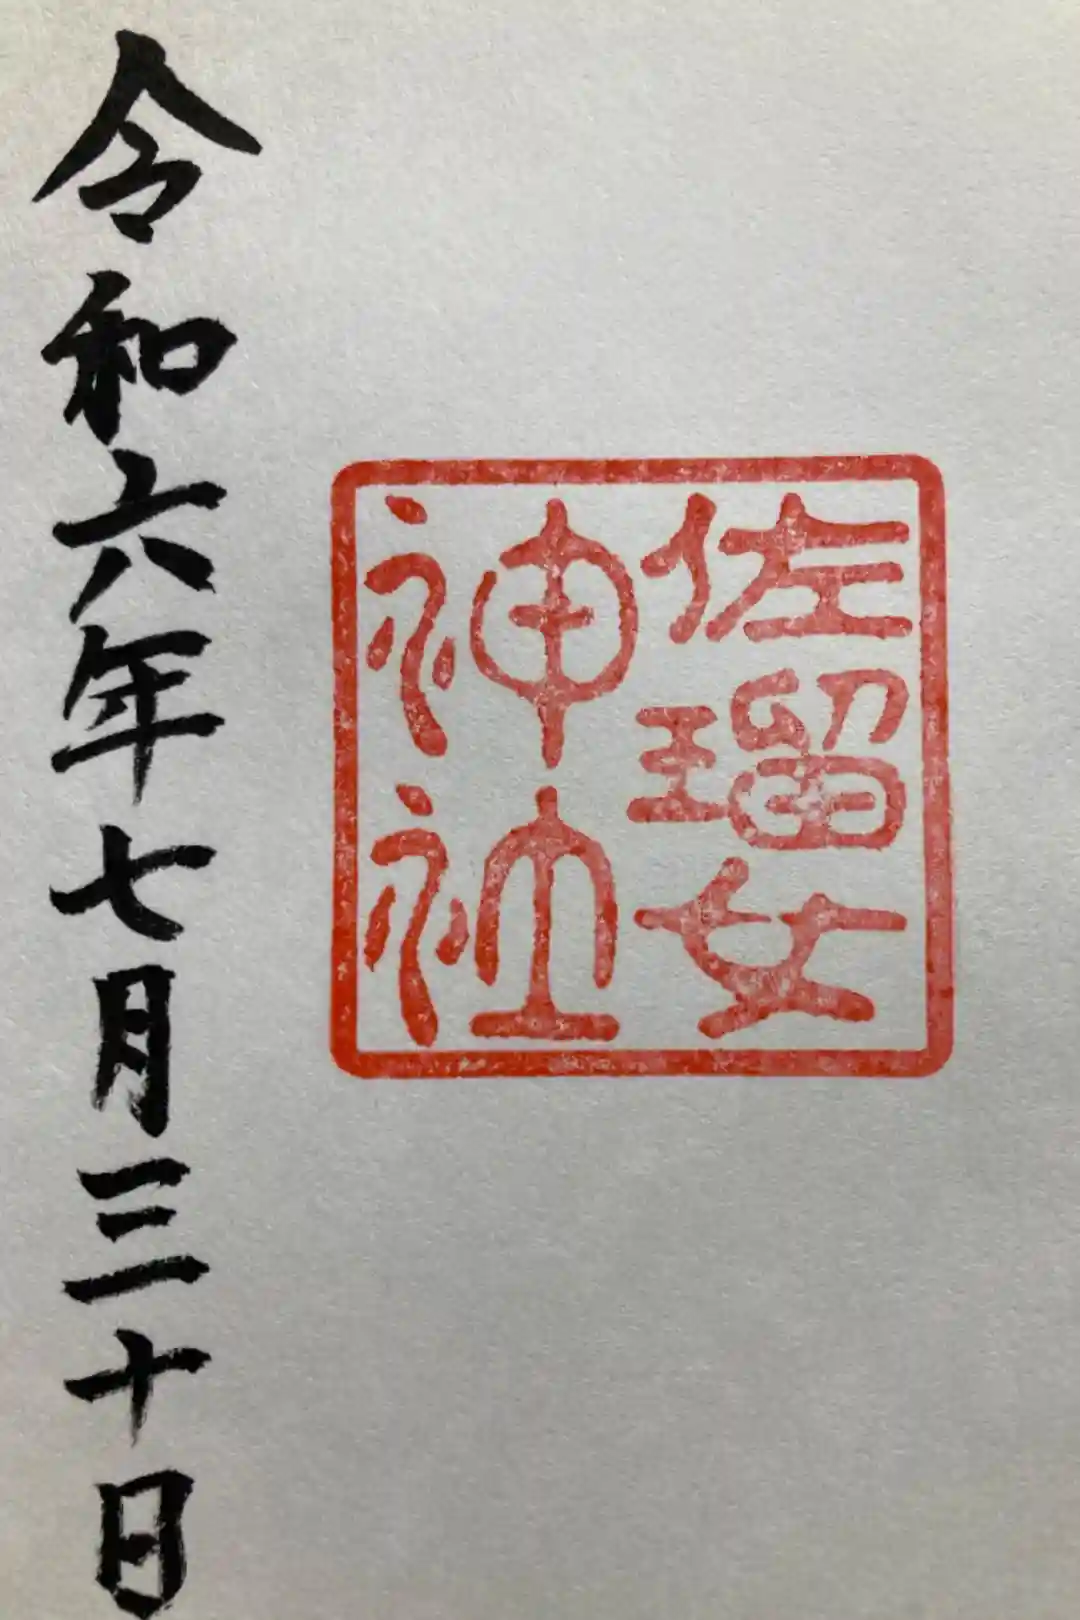 佐瑠女
神社
令和六年七月三十日